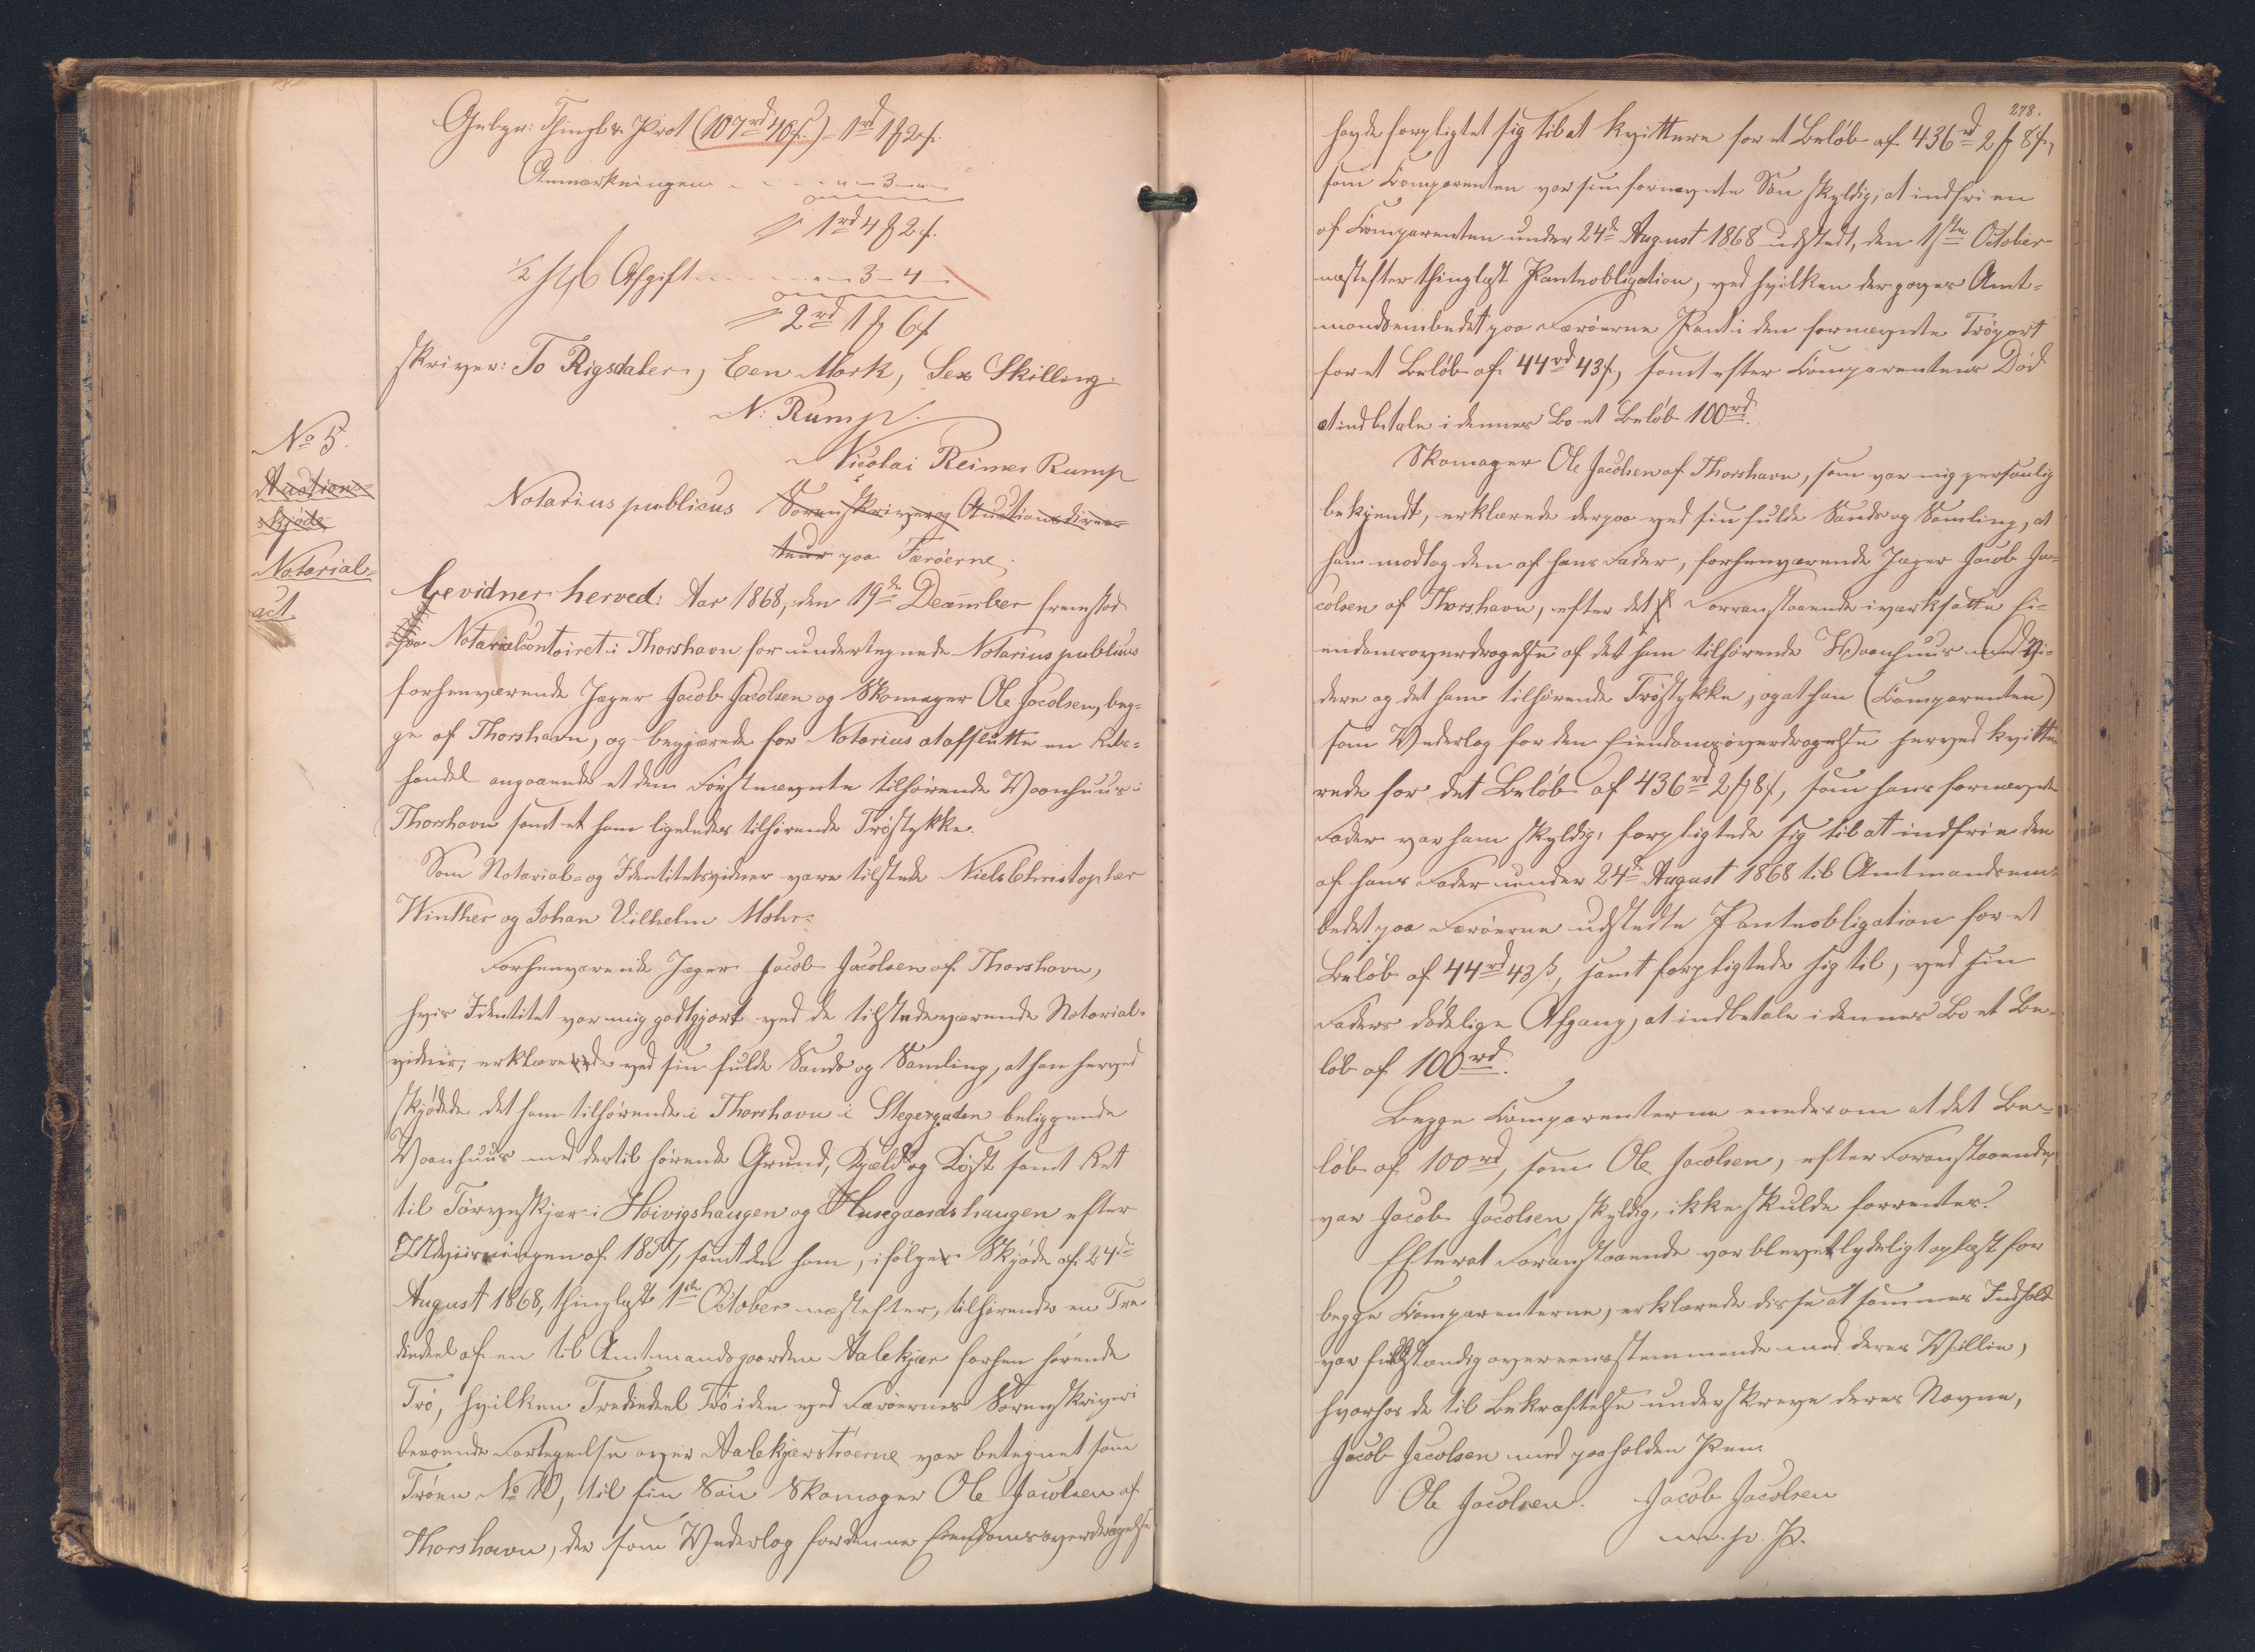 Gebyr: Thingl. & Prot (107rd 40s.) = 1rd 1 2 s.
Anmærkningen - - - " - 3 - "
1rd 4 2 s.
½ % Afgift - - - " - 3 - 4 -
2rd 1 6 s
skriver: To Rigsdaler, Een Mark, Sex Skilling.
N: Rump.
Nicolai Reimer Rump
Notarius publicus Sorenskriver og Auctionsdirec=
teur paa Færöerne.
No 5.
Auctions=
skjöde
Notarial=
act
bevidner herved: Aar 1868, den 19de December fremstod
paa Notarialcontoiret i Thorshavn for undertegnede Notarius publicus
forhenværende Jæger Jacob Jacobsen og Skomager Ole Jacobsen, beg=
ge af Thorshavn, og begjærede for Notarius at afslutte en Kjøb=
handel angaaende et dem Förstnævnte tilhörende Vaanhuus i
Thorshavn samt et ham ligeledes tilhörende Tröstykke.
Som Notarial- og Identitetsvidner vare tilstede Niels Christopher
Winther og Johan Vilhelm Mohr.
Forhenværende Jæger Jacob Jacobsen af Thorshavn,
hvis Identitet var mig godtgjort ved de tilstedeværende Notarial-
vidner, erklærede ved sin fulde Sands og Samling, at han herved
skjödede det ham tilhörende i Thorshavn i Stegergaden beliggende
Vaanhuus med dertil hörende Grund, Kjæld og Töft samt Ret
til Törveskjær i Hoivigshaugen og Husegaardshaugen efter
Udviisningen af 1857, samt den ham, ifölge Skjöde af 24de
August 1868, thinglæst 1ste October næstefter, tilhörende en Tre
diedeel af en til Amtmandsgaarden Aalekjær forhen hörende
Trö, hvilken Trediedeel Trö i den ved Færöernes Sorenskriveri
beroende Fortegnelse over Aalekjerströerne var betegnet som
Tröen No 10, til sin Sön Skomager Ole Jacobsen af
Thorshavn, der som Vederlag for denne Eiendomsoverdragelse
278.
havde forpligtet sig til at kvittere for et Belöb af 436rd 2 8 s,
som Comparenten var sin fornævnte Sön skyldig, at indfri en
af Comparenten under 24de August 1868 udstedt, den 1ste October
næstefter thinglæst Panteobligation, ved hvilken der gaves Amt=
mandsembedet paa Færöerne Pant i den fornævnte Tröpart
for et Belöb af 44rd 43 s, samt efter Comparentens Död
at indbetale i dennes Bo et Belöb 100rd.
Skomager Ole Jacobsen af Thorshavn, som var mig personlig
bekjendt, erklærede derpaa ved sin fulde Sands og Samling, at
han modtog den af hans Fader, forhenværende Jæger Jacob Ja=
cobsen af Thorshavn, efter det Forranstaaende iværksatte Ei=
endomsoverdragelse af det ham tilhörende Vaanhuus med Vi=
dere og det ham tilhörende Tröstykke, og at han (Comparenten)
som Vederlag for den Eiendomsoverdragelse herved kvitte=
rede for det Belöb af 436rd 2 8 s, som hans fornævnte
Fader var ham skyldig, forpligtede sig til at indfrie den
af hans Fader under 24de August 1868 til Amtmandsem=
bedet paa Færöerne udstedte Panteobligation for et
Belöb af 44rd 43 s, samt forpligtede sig til, ved sin
Faders dödelige Afgang, at indbetale i dennes Bo et Be=
löb af 100rd.
Begge Comparenterne enedes om at det Be=
löb af 100rd, som Ole Jacobsen, efter Foranstaaende,
var Jacob Jacobsen skyldig, ikke skulde forrentes.
Efterat Foranstaaende var blevet lydeligt oplæst for
begge Comparenterne, erklærede disse at sammes Indhold
var fuldstændig overeensstemmende med deres Villie,
hvorhos de til Bekræftelse underskreve deres Navne,
Jacob Jacobsen med paaholden Pen.
Ole Jacobsen. Jacob Jacobsen
m. p. P.